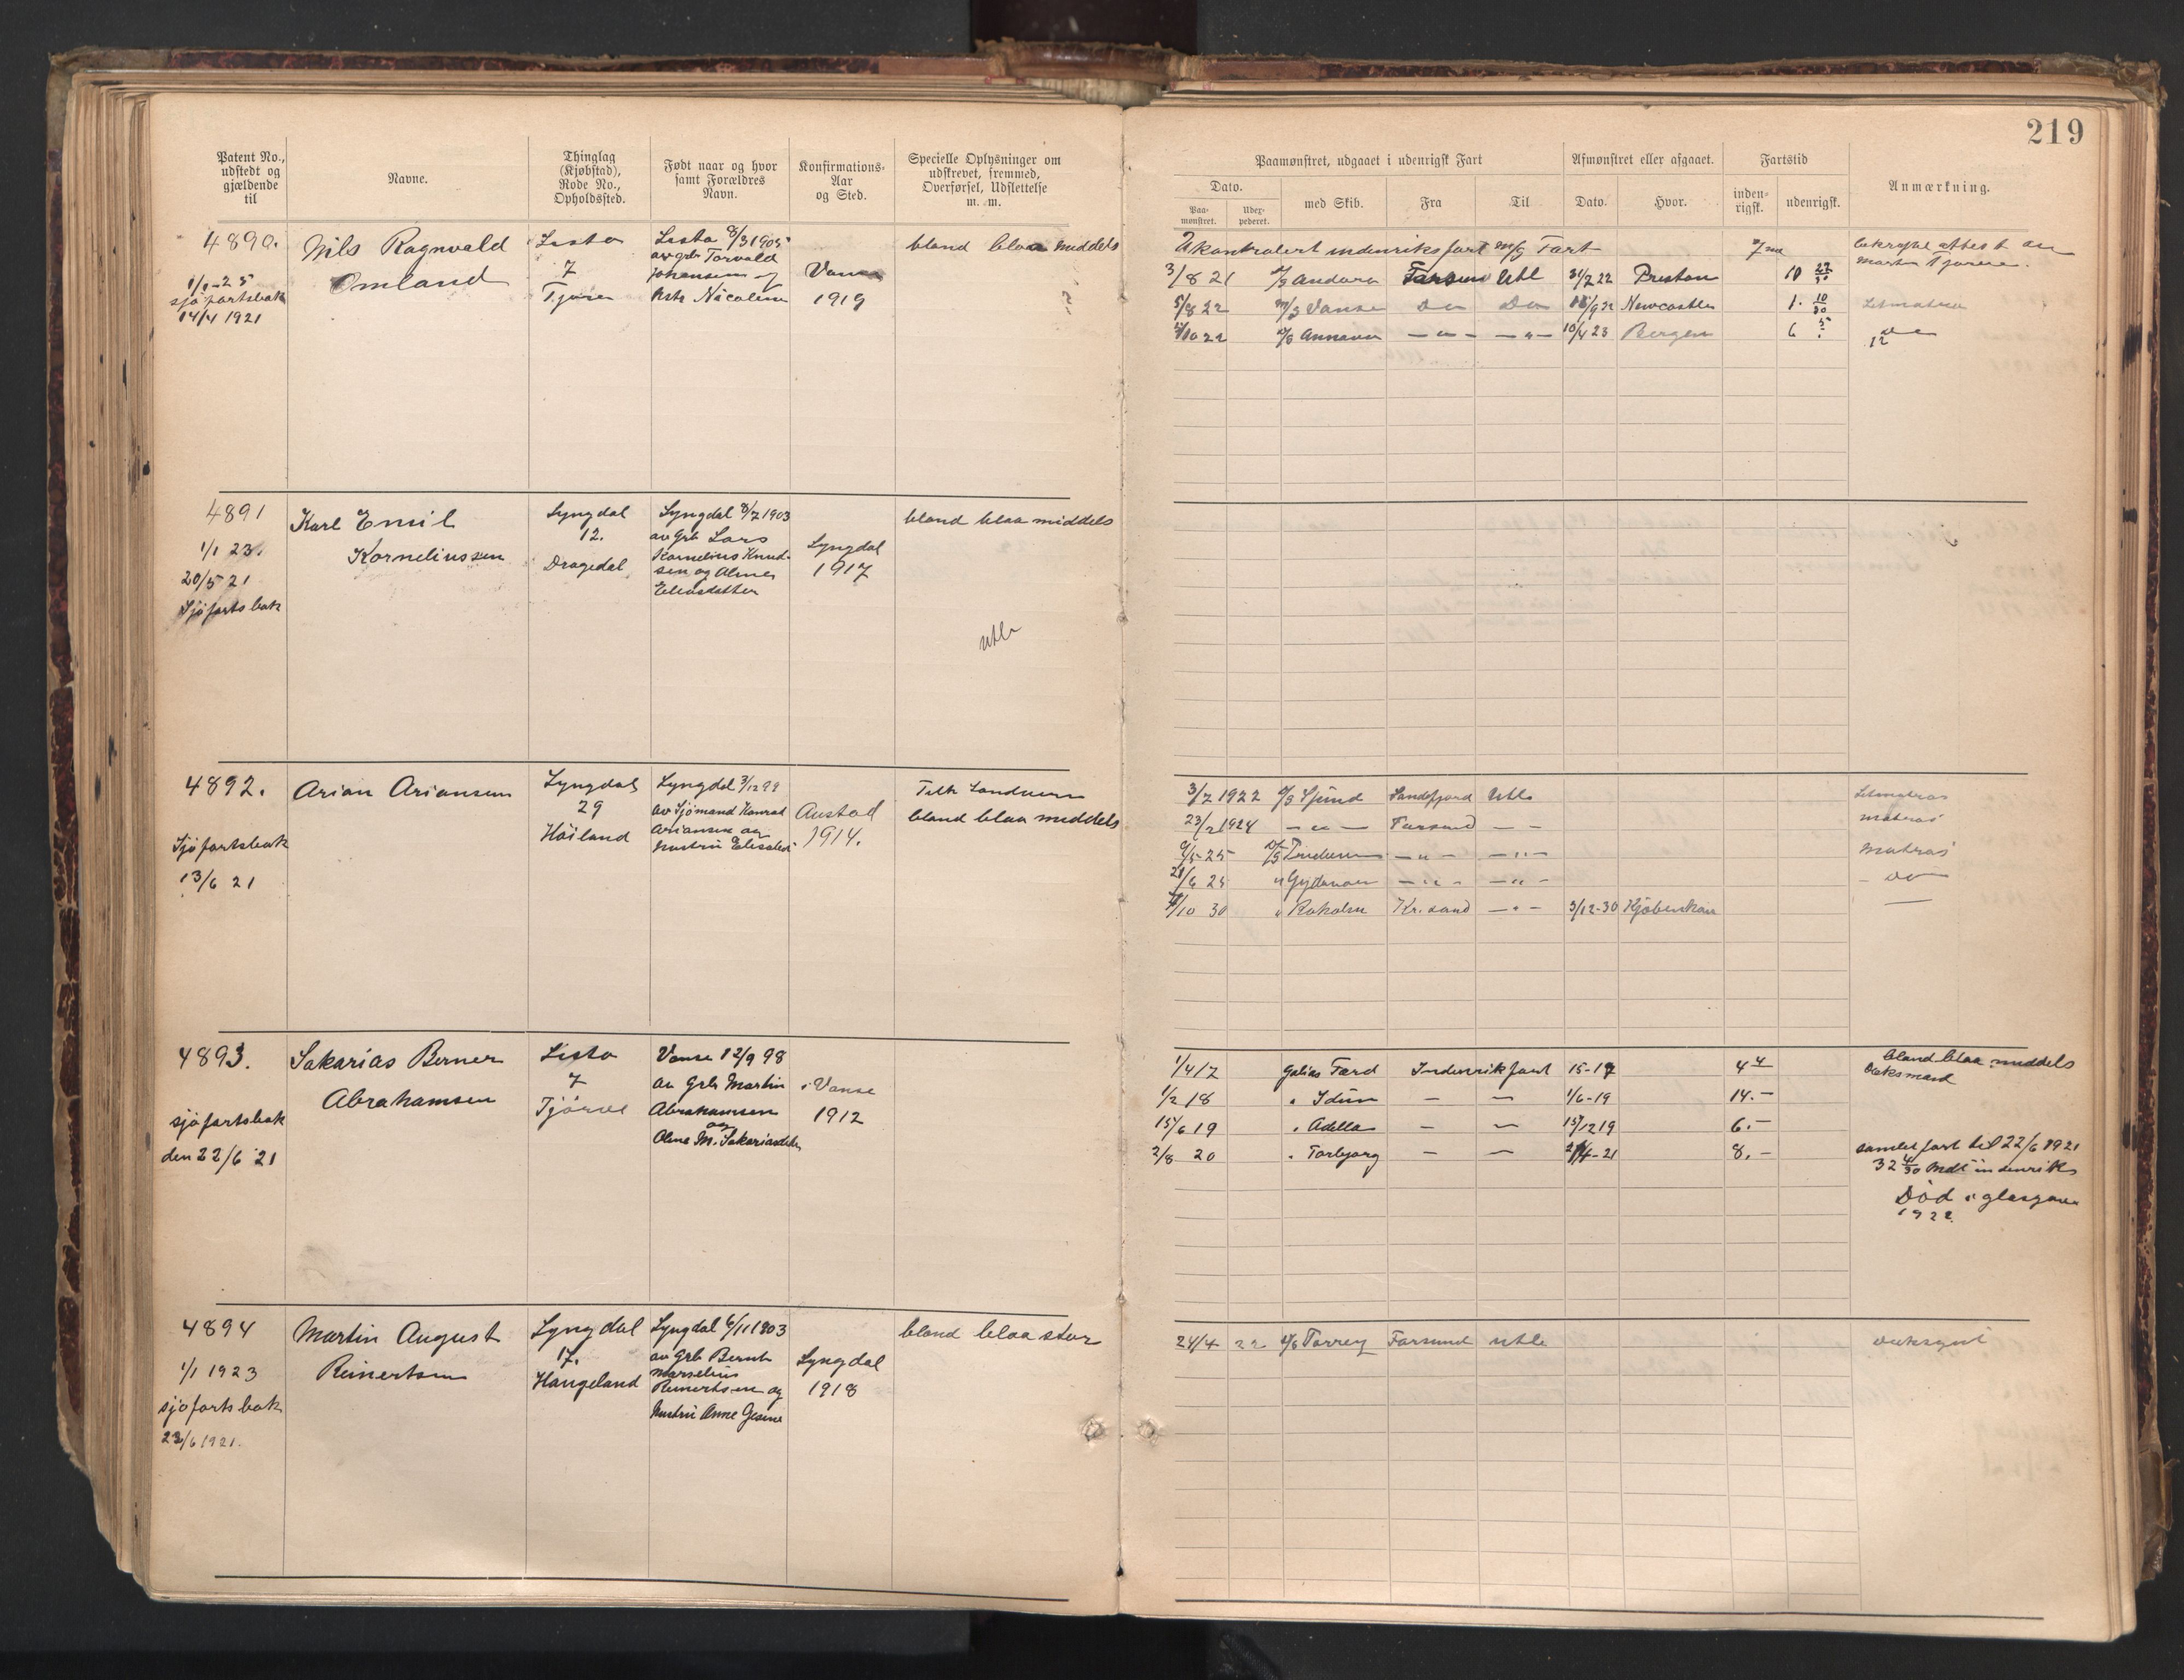 219
Patent No., udstedt og gjældende til
Navne.
Thinglag (Kjøbstad), Rode No., Opholdssted.
Født naar og hvor samt Forældres Navn.
Konfirmations-Aar og Sted.
Specielle Oplysninger om udskrevet, fremmed, Overførsel, Udslettelse m. m.
Paamønstret, udgaaet i udenrigsk Fart
Afmønstret eller afgaaet.
Fartstid
Anmærkning.
Dato.
Paa-mønstret.
Uder-pederet.
med Skib.
Fra
Til
Dato.
Hvor.
inden-rigsk.
udenrigsk.
4890.
1/1-25
sjøfartsbok
14/4 1921
Nils Ragnvald
Omland
Lista
7
Tjørve
Lista 8/3 1905
av grb Torvald
Johansen og
Nicoline
Vanse
1919
blond blaa middels
Ukontrolert indenriksfart m/s Fart
bekræft attest av
3/8 21 Andora Farsund Utl 31/7 22 Preston 10 27/30
5/8 22 m/s Vanse Do Do 15/9 22 Newcastle 1. 10/30 Letmatros
10 22 Annavor — " — — " — 10/4 23 Bergen 6 5 do
12
4891
1/1 23.
20/5 21
Sjøfartsbok
Karl Emil
Korneliussen
Lyngdal
12.
Dragedal
Lyngdal 8/7 1903
av Grb Lars
Kornelius Knud-
sen og Alma
Eliasdatter
Lyngdal
1917
blond blaa middels
utl
4892.
Sjøfartsbok
13/6 21
Arian Ariansen
Lyngdal
29
Høiland
Lyngdal 3/12 99
av Sjømand Konrad
Ariansen og
hustru Elisabet
Austad
1914.
Tilh Landvern
blond blaa middels
3/7 1922 Sjünd Sandefjord Utl Letmatros
23/2 1924 — " — Farsund — — matros
5-25 — " — — " — Matros
6 25 " — " — — " — do
10 30 " Roholm Kr.sand — " — 3/12-30 Kjøbenhavn —
4893.
sjøfartsbok
den 22/6 21
Sakarias Berner
Abrahamsen
Lista
7
Tjørve
Vanse 12/9 98
av Grb Martin
Abrahamsen
og
Oline M. Sakariasdtr
Vanse
1912
1/4 17 galias Færd Indenriksfart 15-17 4 4
1/2 18 " Idun — — 1/6-19 14.—
15/6 19 " Adella — — 15/12 19 6.—
2/8 20 " Torbjørg — — 4-21 8.—
blond blaa middels
Dæksmand
samlet fart til 22/6 1921
32 4/30 mdt indenriks
Død i glasgow
1922.
4894
1/1 1923
sjøfartsbok
23/6 1921.
Martin August
Reinertsen
Lyngdal
17.
Haugeland
Lyngdal 6/11 1903
av Grb Bernt
Marselius
Reinertsen og
hustru Anne Gesine
Lyngdal
1918
blond blaa stor
24/4 22 Torrey Farsund utl dæksgut